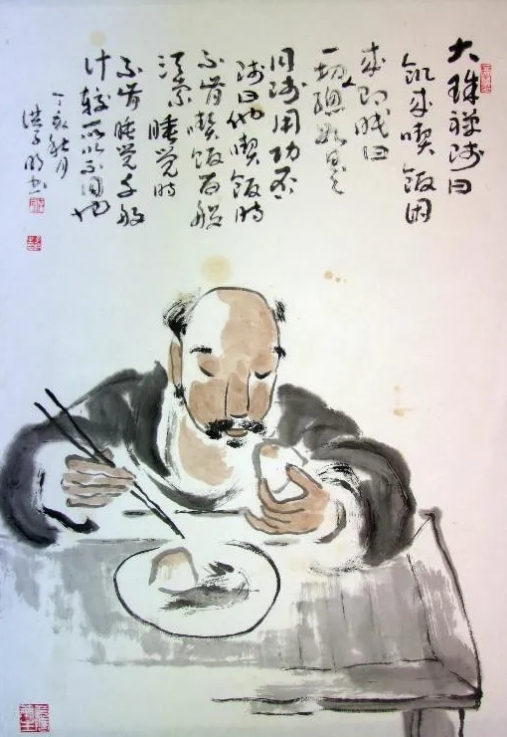 大珠禅师曰
飢来喫飯困
来即眠曰
一切人總如是
同师用功否
师曰他喫飯时
不肯喫飯百般
须索睡觉时
不肯睡觉千般
计较所以不同也
丁亥秋月